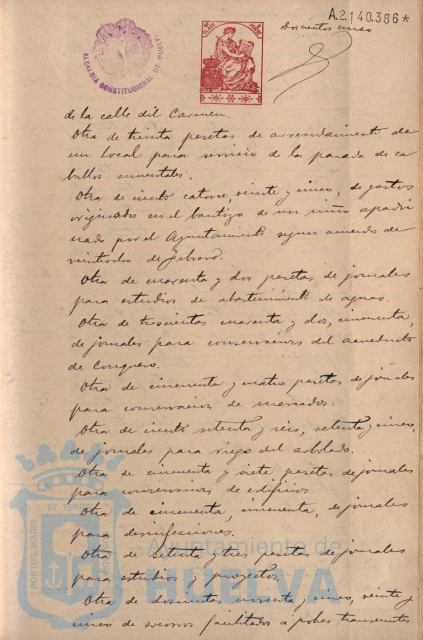 A.2140.386*
Doscientos cinco
ALCALDIA CONSTITUCIONAL DE HUELVA
de la calle del Carmen.
Otra de treinta pesetas de arrendamiento de
un local para servicio de la parada de ca
ballos sementales.
Otra de ciento catorce, veinte y cinco, de gastos
originados en el bautizo de un niño apadri
nado por el Ayuntamiento segun acuerdo de
veintiocho de febrero.
Otra de cuarenta y dos pesetas de jornales
para estudios de abastecimiento de aguas.
Otra de trescientas cuarenta y dos, cincuenta,
de jornales para conservacion del acueducto
de Conquero.
Otra de cincuenta y cuatro pesetas de jornales
para conservacion de mercados.
Otra de ciento setenta y seis, setenta y cinco,
de jornales para riego del arbolado.
Otra de cincuenta y siete pesetas de jornales
para conservacion de edificios.
Otra de cincuenta, cincuenta, de jornales
para desinfecciones.
Otra de setenta y tres pesetas de jornales
para estudios y proyectos.
Otra de doscientas noventa y cinco, veinte y
cinco de socorros facilitados a pobres transeuntes
PORTUS MARIS ET TERRE
Ayuntamiento de
HUELVA